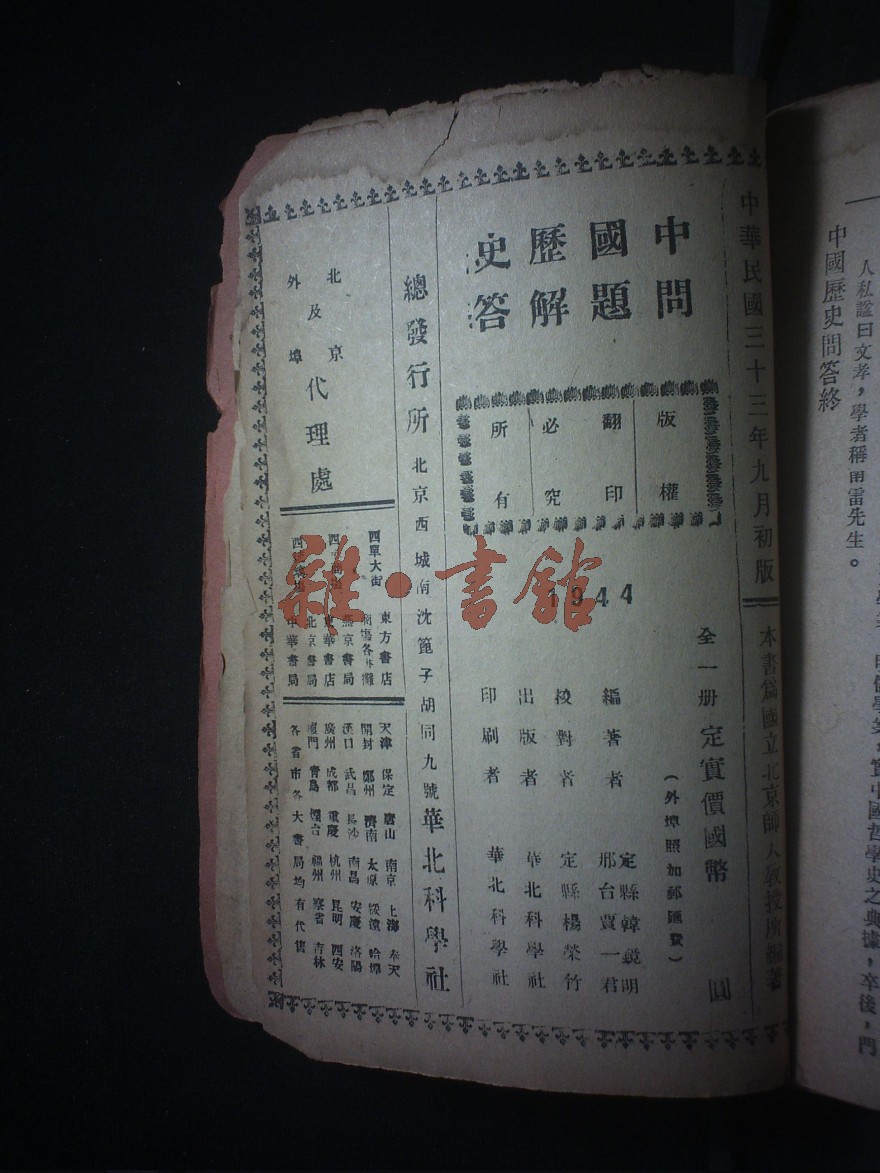 人私謚曰文孝，學者稱南雷先生。
中國歷史問答終
中華民國三十三年九月初版
本書為國立北京師大教授所編著
中國歷史
問題解答
版權
翻印
必究
所有
1944
全一册 定實價國幣 圓
（外埠照加郵匯費）
編著者 定縣韓鏡明
邢台賈一君
校對者 定縣楊榮竹
出版者 華北科學社
印刷者 華北科學社
總發行所 北京西城南沈篦子胡同九號 華北科學社
北京
及
外埠
代理處
東方書店
西單大街 商場各書攤
燕京書局
華書店
北京書局
中華書局
天津 保定 唐山 南京 上海 奉天
開封 鄭州 濟南 太原 綏遠 哈埠
漢口 武昌 長沙 南昌 安慶 洛陽
廣州 成都 重慶 杭州 昆明 西安
廈門 青島 烟台 福州 察省 吉林
各省市各大書局均有代售
雜·書館